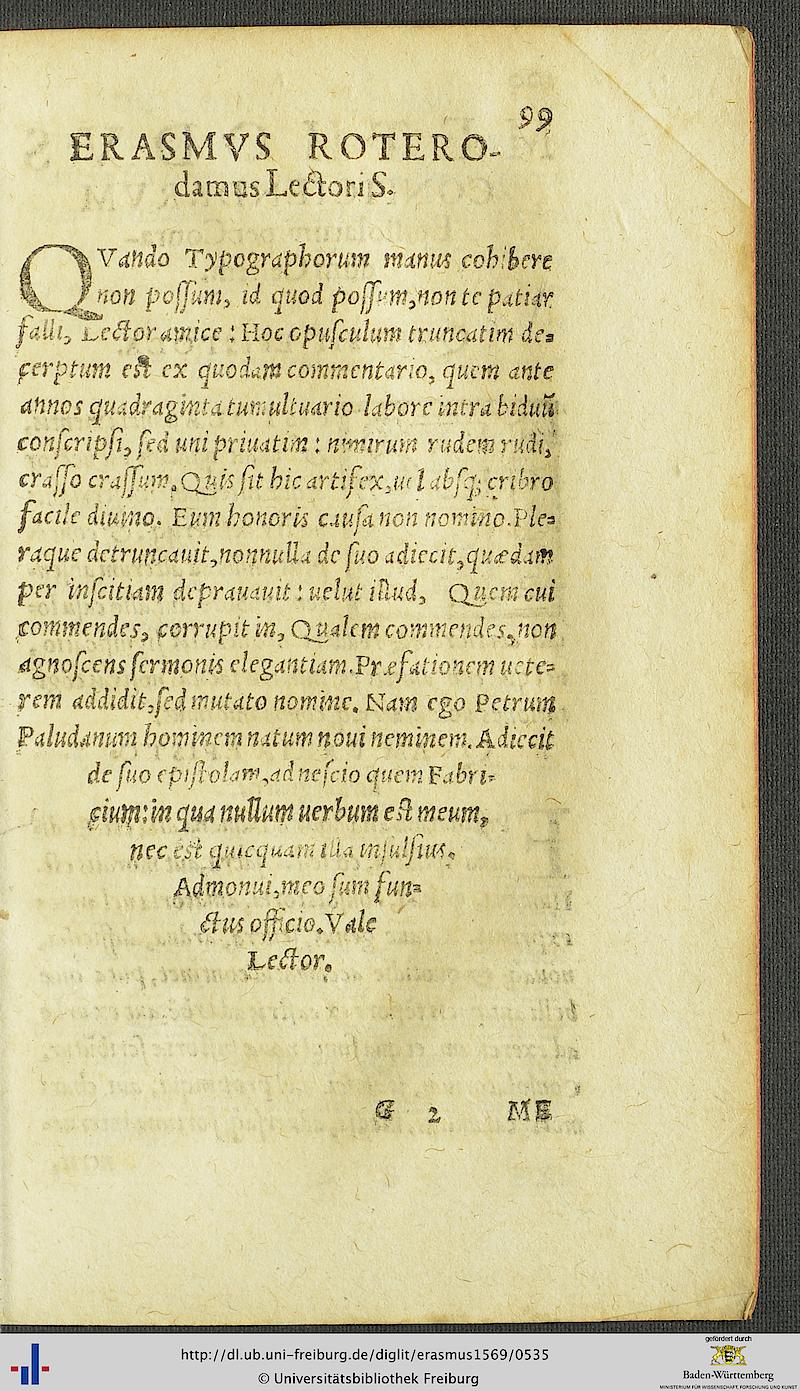 99
ERASMVS ROTERO-
damus Lectori S.
QVando Typographorum manus cohibere
non poſſum, id quod poſſum, non te patiar
falli, Lector amice: Hoc opuſculum truncatim de-
cerptum eſt ex quodam commentario, quem ante
annos quadraginta tumultuario labore intra biduũ
conſcripſi, ſed uni priuatim: nimirum rudem rudi,
craſſo craſſum. Quis ſit hic artifex, uel abſq; cribro
facile diuino. Eum honoris cauſa non nomino. Ple-
raque detruncauit, nonnulla de ſuo adiecit, quædam
per inſcitiam deprauauit: uelut illud, Quem cui
commendes, corrupit in, Qualem commendes, non
agnoſcens ſermonis elegantiam. Præfationem uete-
rem addidit, ſed mutato nomine. Nam ego Petrum
Paludanum hominem natum noui neminem. Adiecit
de ſuo epiſtolam, ad neſcio quem Fabri-
cium: in qua nullum uerbum eſt meum,
nec eſt quicquam illa inſulſius.
Admonui, meo ſum fun-
ctus officio. Vale
Lector.
G 2 ME
http://dl.ub.uni-freiburg.de/diglit/erasmus1569/0535
© Universitätsbibliothek Freiburg
gefördert durch
Baden-Württemberg
MINISTERIUM FÜR WISSENSCHAFT, FORSCHUNG UND KUNST